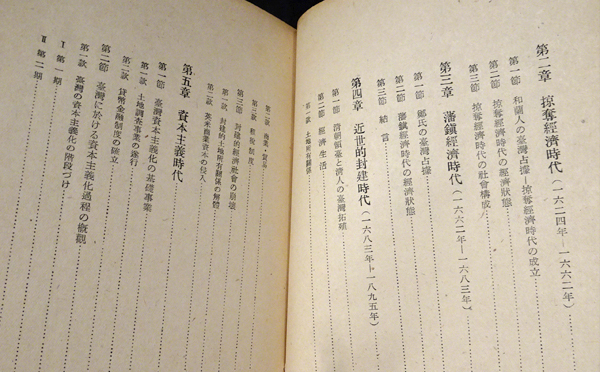 第二章 掠奪經濟時代(一六二四年―一六六二年)
第一節 和蘭人の臺灣占據―掠奪經濟時代の成立
第二節 掠奪經濟時代の經濟狀態
第三節 掠奪經濟時代の社會構成
第三章 藩鎭經濟時代(一六六二年―一六八三年)
第一節 鄭氏の臺灣占據
第二節 藩鎭經濟時代の經濟狀態
第三節 結言
第四章 近世的封建時代(一六八三年―一八九五年)
第一節 淸朝領臺と淸人の臺灣拓殖
第二節 經濟生活
第一款 土地所有關係
第二款 商業・貿易
第三款 租稅制度
第三節 封建的經濟社會の崩壞
第一款 封建的土地所有關係の解體
第二款 英米商業資本の侵入
第五章 資本主義時代
第一節 臺灣資本主義化の基礎事業
第一款 土地調査事業の遂行
第二款 貨幣金融制度の確立
第二節 臺灣に於ける資本主義化過程の槪觀
第一款 臺灣の資本主義化の階段づけ
I 第一期
II 第二期